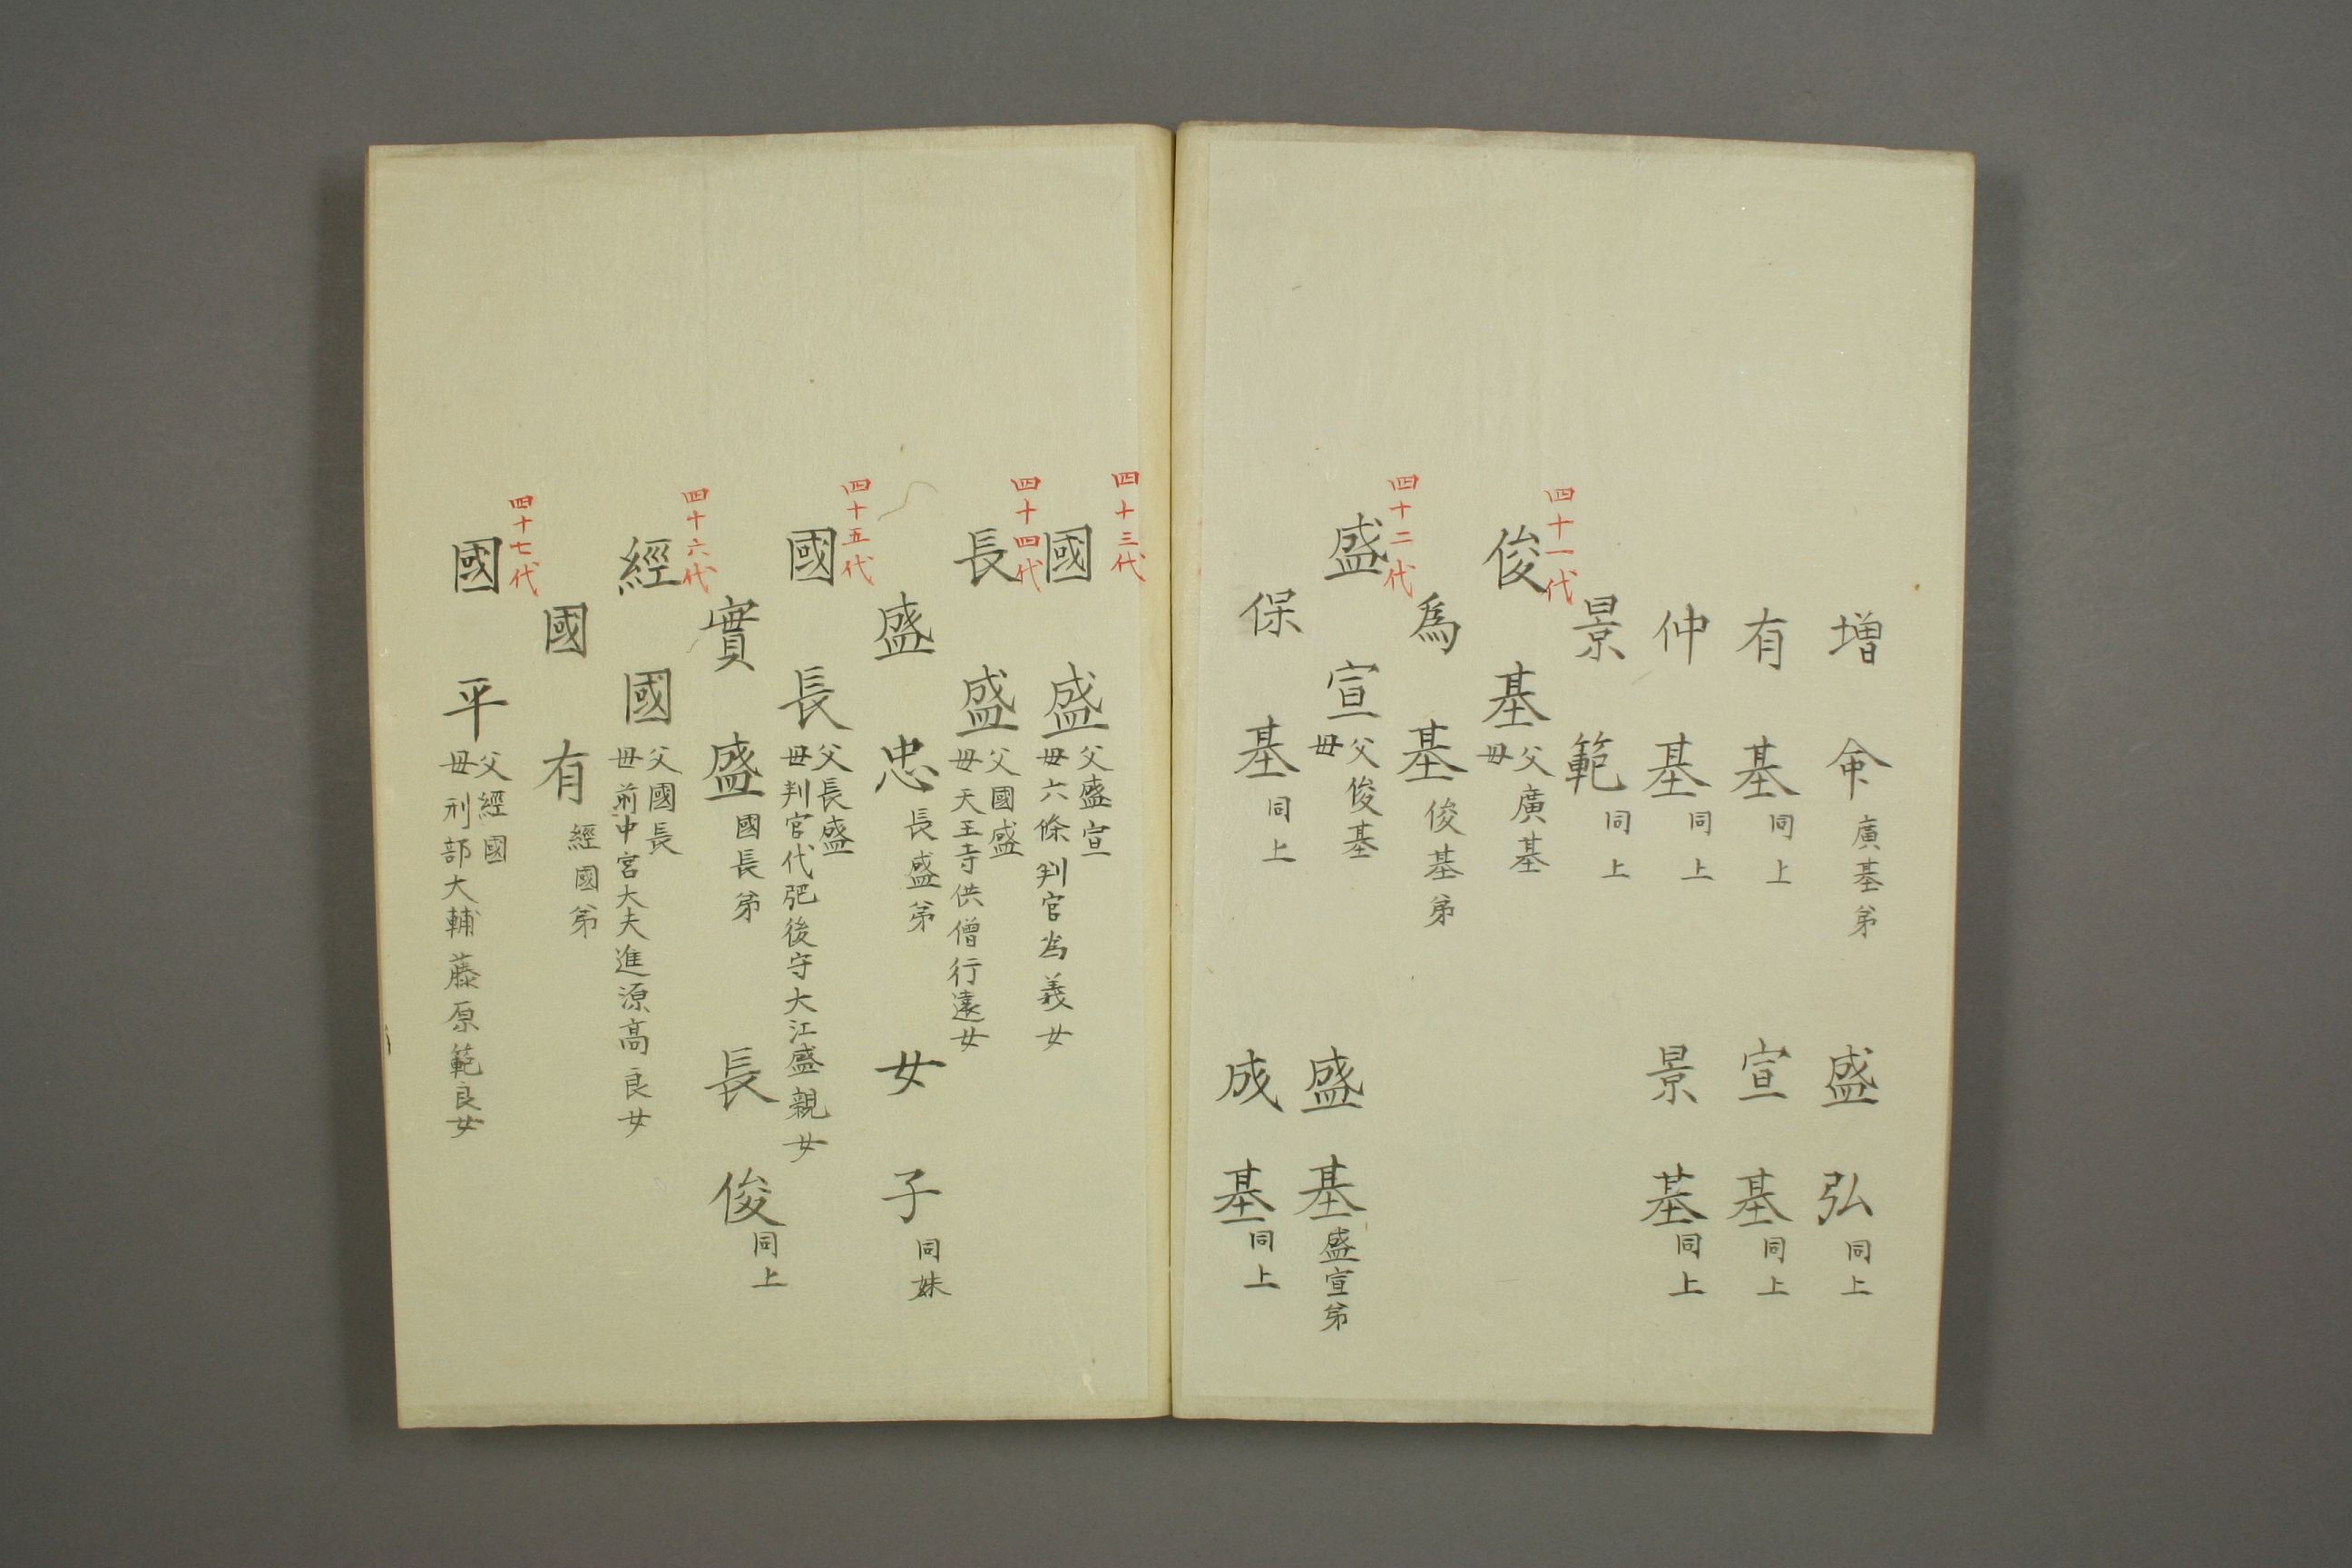 増命 廣基弟 盛弘 同上
有基 同上 宣基 同上
仲基 同上 景基 同上
景範 同上
四十一代
俊基 父廣基
母
為基 俊基弟
四十二代
盛宣 父俊基
母
盛基 盛宣弟
保基 同上 成基 同上
四十三代
國盛 父盛宣
母六條判官為義女
四十四代
長盛 父國盛
母天王寺供僧行遠女
盛忠 長盛弟 女子 同妹
四十五代
國長 父長盛
母判官代肥後守大江盛親女
實盛 國長弟 長俊 同上
四十六代
經國 父國長
母前中宮大夫進源高良女
國有 經國弟
四十七代
國平 父經國
母刑部大輔藤原範良女